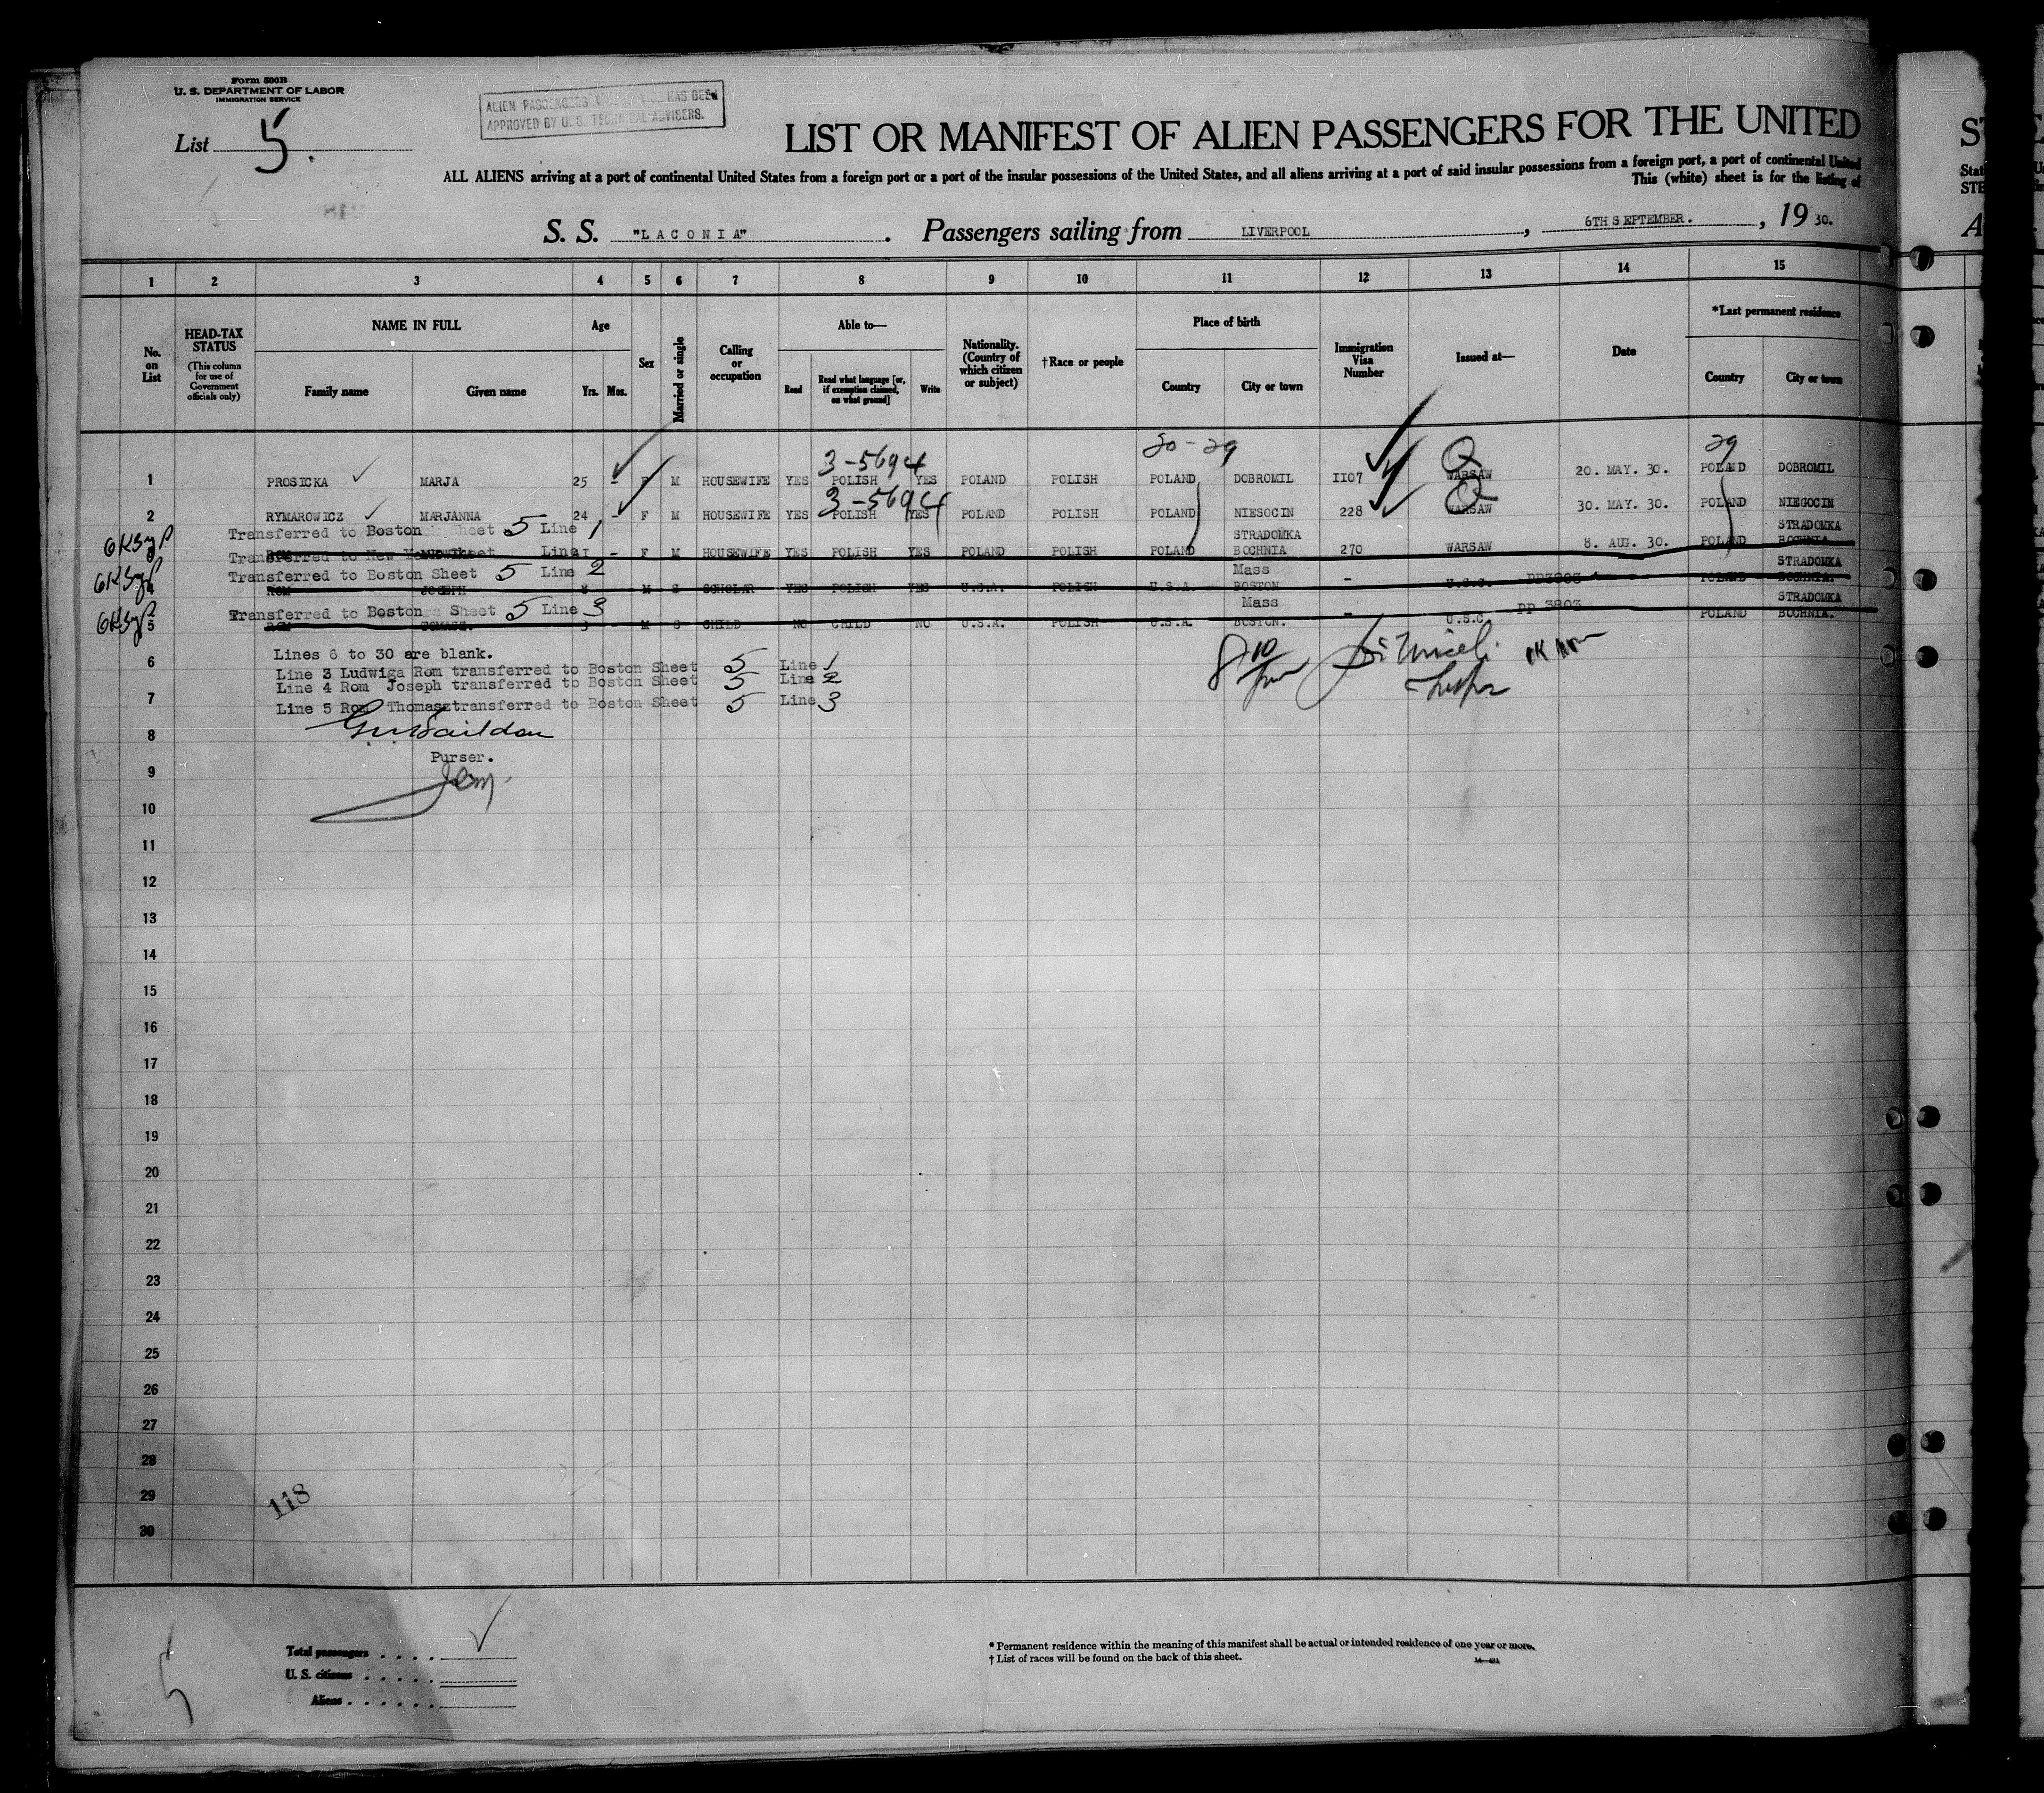 Form 500B
U. S. DEPARTMENT OF LABOR
IMMIGRATION SERVICE
List 5.
ALIEN PASSENGERS HAS BEEN
APPROVED BY U. S. TECHNICAL ADVISERS.
LIST OR MANIFEST OF ALIEN PASSENGERS FOR THE UNITED
ALL ALIENS arriving at a port of continental United States from a foreign port or a port of the insular possessions of the United States, and all aliens arriving at a port of said insular possessions from a foreign port, a port of continental United
This (white) sheet is for the listing of
S. S. "LACONIA". Passengers sailing from LIVERPOOL, 6TH SEPTEMBER., 19 30.
1 2 3 4 5 6 7 8 9 10 11 12 13 14 15
No. on List
HEAD-TAX STATUS (This column for use of Government officials only)
NAME IN FULL Family name Given name
Age Yrs. Mos.
Sex
Married or single
Calling or occupation
Able to— Read Read what language [or, if exemption claimed, on what ground] Write
Nationality. (Country of which citizen or subject)
†Race or people
Place of birth Country City or town
Immigration Visa Number
Issued at—
Date
*Last permanent residence Country City or town
3-5694 20-29 29
1 PROSICKA MARJA 25 - F M HOUSEWIFE YES POLISH YES POLAND POLISH POLAND DOBROMIL II07 WARSAW 20. MAY. 30. POLAND DOBROMIL
3-5694
2 RYMAROWICZ MARJANNA 24 - F M HOUSEWIFE YES POLISH YES POLAND POLISH POLAND NIESOCIN 228 WARSAW 30. MAY. 30. POLAND NIEGOCIN
Transferred to Boston Sheet 5 Line 1 STRADOMKA STRADOMKA
Transferred to New Line F M HOUSEWIFE YES POLISH YES POLAND POLISH POLAND BOCHNIA 270 WARSAW 8. AUG. 30. POLAND BOCHNIA.
Transferred to Boston Sheet 5 Line 2 Mass STRADOMKA
ROM JOSEPH 8 M S SCHOLAR YES POLISH YES U.S.A. POLISH U.S.A. BOSTON - U.S.C. PP3803 POLAND BOCHNIA.
Transferred to Boston Sheet 5 Line 3 Mass STRADOMKA
5 ROM 3 - M S CHILD NO CHILD NO U.S.A. POLISH U.S.A. BOSTON. - U.S.C. PP 3803 POLAND BOCHNIA.
Lines 6 to 30 are blank.
6 Line 3 Ludwiga Rom transferred to Boston Sheet 5 Line 1
Line 4 Rom Joseph transferred to Boston Sheet 5 Line 2
7 Line 5 Rom Thomasz transferred to Boston Sheet 5 Line 3
8
Purser.
9
10
11
12
13
14
15
16
17
18
19
20
21
22
23
24
25
26
27
28
29
118
30
Total passengers
U. S. citizens
Aliens
5
* Permanent residence within the meaning of this manifest shall be actual or intended residence of one year or more.
† List of races will be found on the back of this sheet.